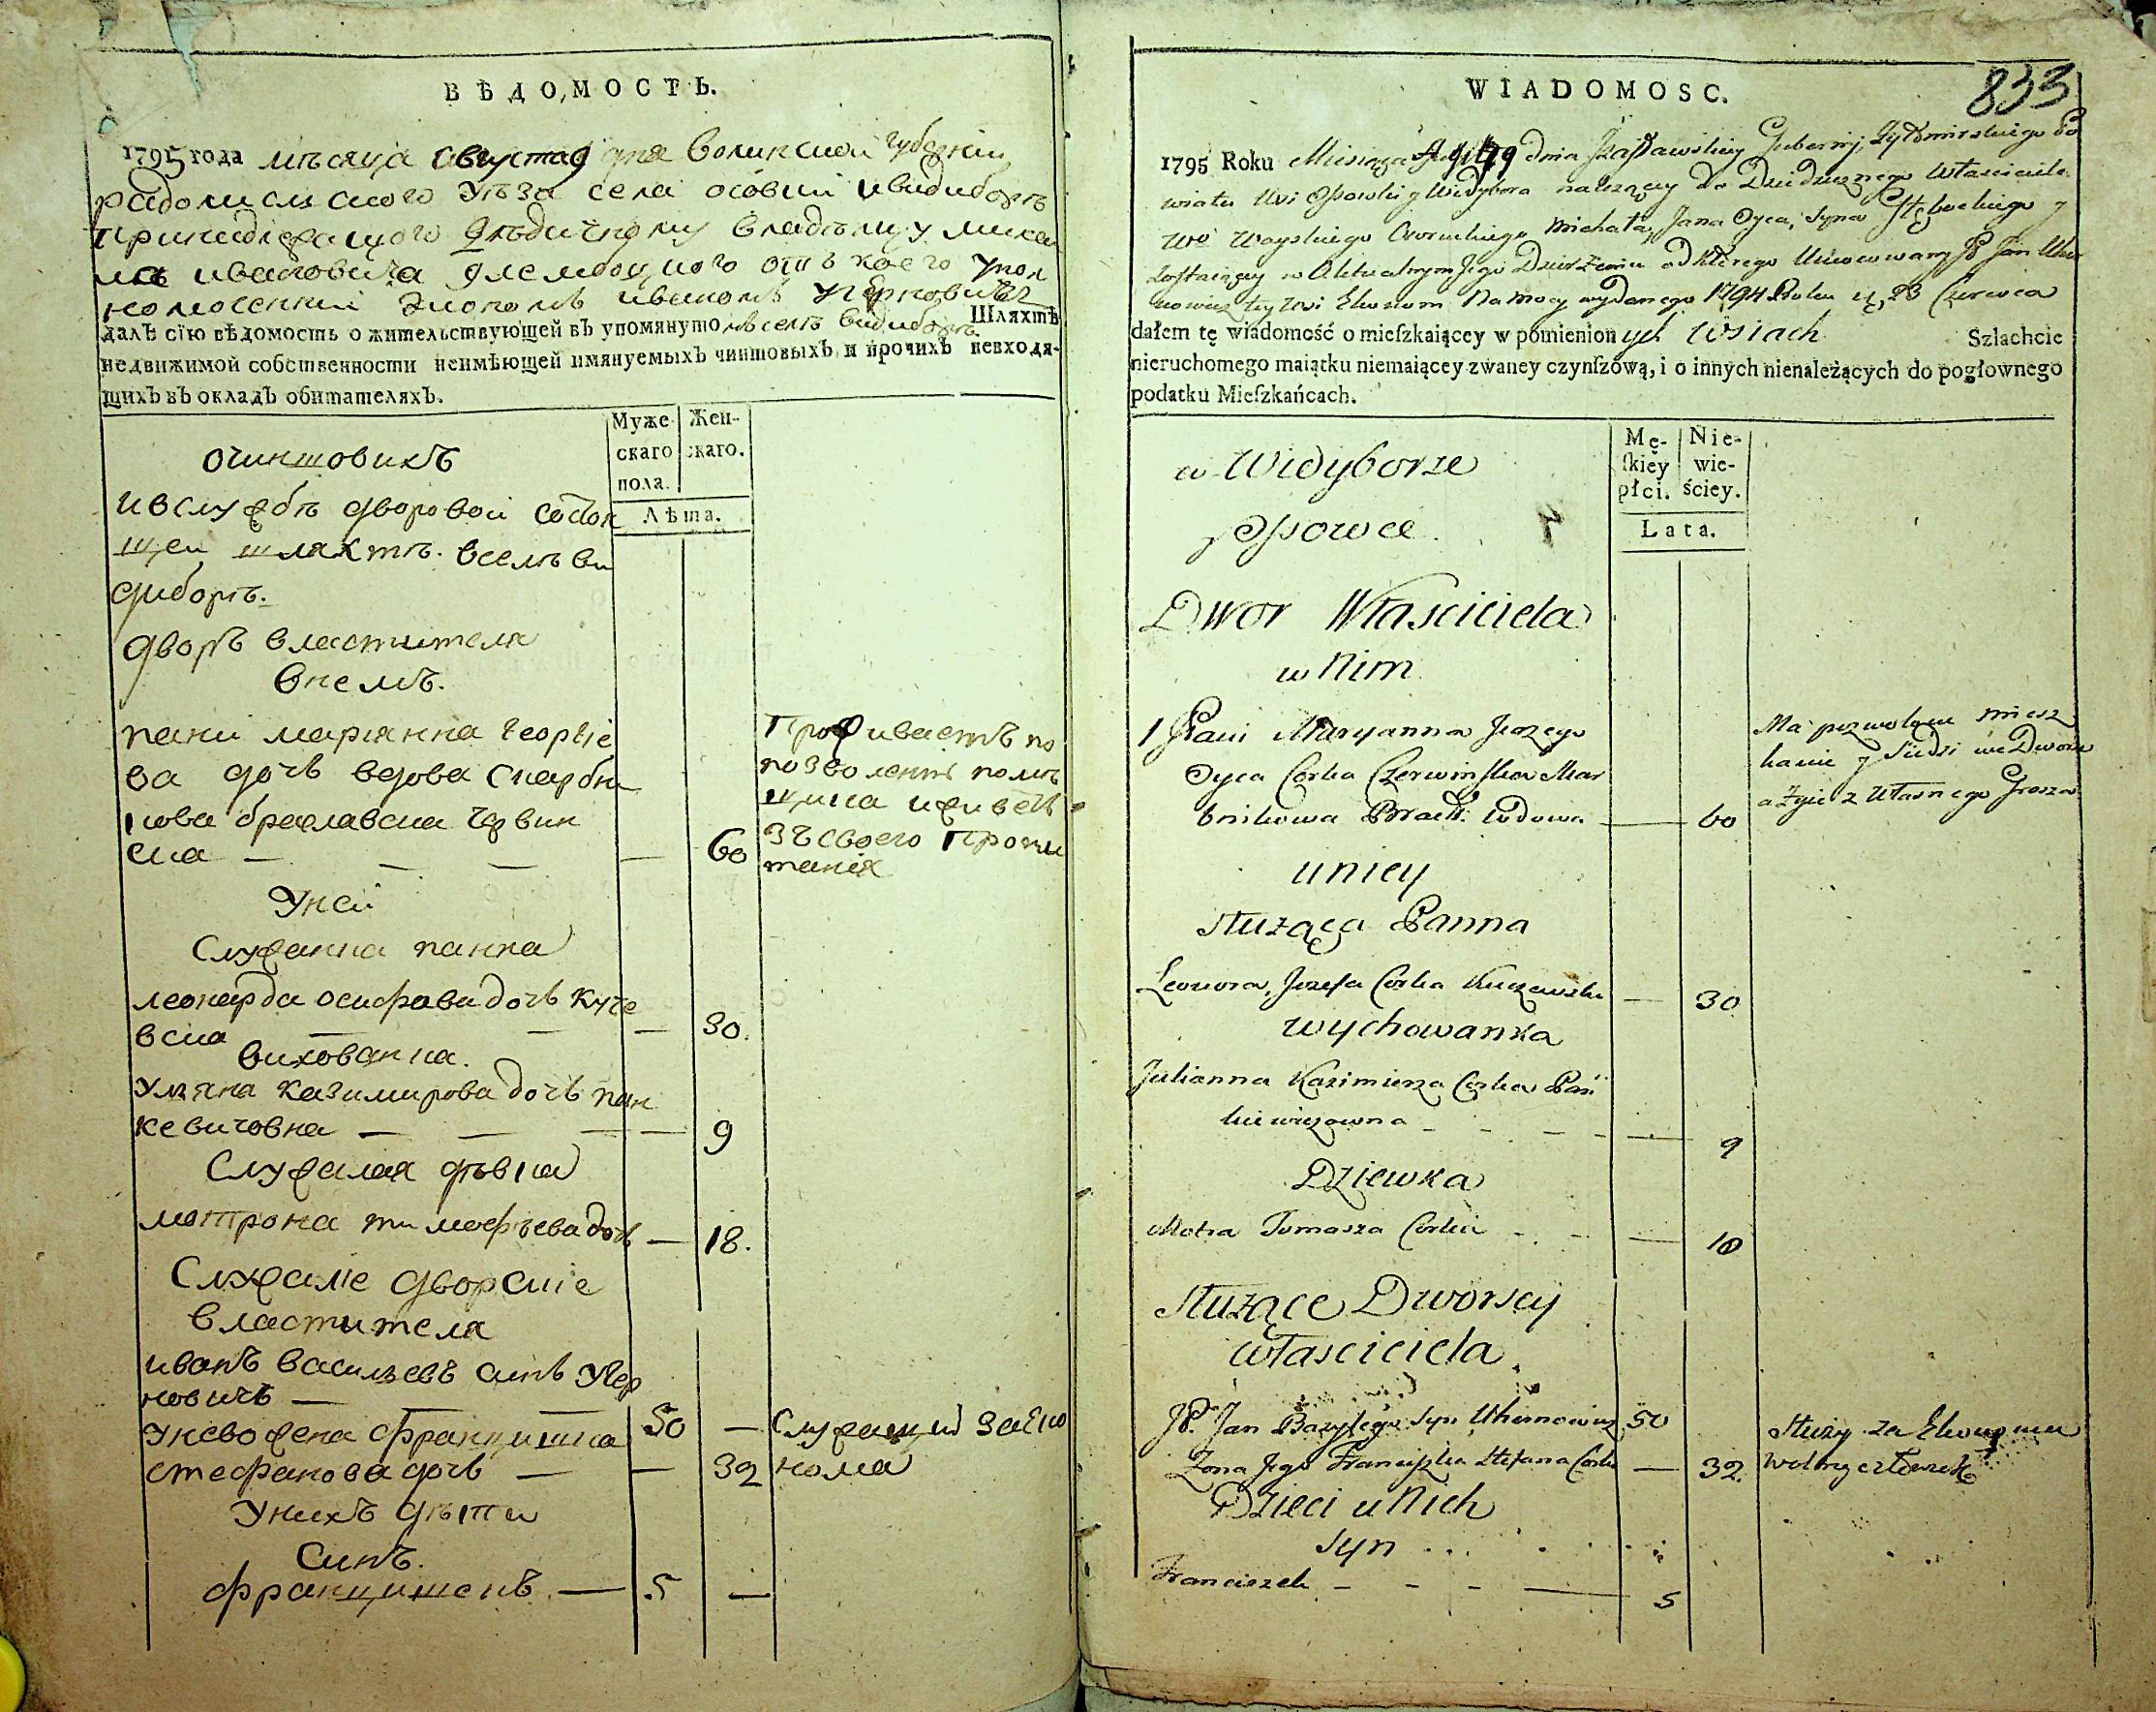 ВѢДОМОСТЬ.
1795 года мѣсяца августа 9 дня волинской губерніи
радомисльского уѣза села осовки ивидиборъ
принадлежащого дѣдичному владѣлцу михаи
ла ивановича глембоцкого отъ коего упол
номоченній економъ иванъ ухерновичъ
далъ сїю вѣдомость о жительствующей въ упомянутомъ селѣ видиборѣ Шляхтѣ
недвижимой собственности неимѣющей имянуемыхъ чиншовыхъ и прочихъ невходя-
щихъ въ окладъ обитателяхъ.
Муже- Жен-
скаго скаго.
пола.
Лѣта.
очиншовихъ
ивслужбѣ дворовой состоя
щей шляхтѣ. вселѣ ви
диборѣ.
дворъ властителя
внемъ.
пани марианна георгіе
ва дочъ вдова скарбни
кова браславска червин
ска — — — — 60
Проживаетъ по
позволенію помѣ
щика иживетъ
зъ своего пропи
танія
Уней
Служанка панна
леонарда осифова дочъ куче
вска — — — 30.
вихованка.
Уляна казимирова дочъ пан
кевичовна — — — — 9
Служалая дѣвка
мотрона тимофѣева дочъ — 18.
Служаліе дворскіе
властителя
иванъ васильевъ синъ Ухер
новичъ — 50 —
Служащий за еко
нома
Унево жена францишка
стефанова дочъ — — 32
Унихъ дѣти
Синъ.
францишекъ — 5 —
WIADOMOSC.
833
1795 Roku Miesiąca 9 dnia Izasławskiey Gubernij, Żytomirskiego Po
wiatu Wsi Ossowki y Widybora należący do Dziedzicznego Właściciela
Wo Woyskiego Owruckiego Michała, Jana Oyca, Syna Głębockiego y
zostaiącey w Aktualnym Jego Dzierżeniu od którego Umocowany JP Jan Uher
nowicz tey wsi Ekonom Na mocy wydanego 1794 Roku 23 Czerwca
dałem tę wiadomość o mieſzkaiącey w pomienionych Wsiach Szlachcie
nieruchomego maiątku niemaiącey zwaney czynſzową, i o innych nienależących do pogłownego
podatku Mieſzkańcach.
Mę- Nie-
ſkiéy wie-
płci. ściey.
Lata.
w Widyborze
y Ossowce
Dwor Właściciela
w Nim
1 JPani Maryanna Jerzego
Oyca Corka Czerwińska Skar
bnikowa Bracł: Wdowa — 60
Ma pozwolone miesz
kanie y Siedzi we Dworze
a żyie z Własnego Grosza
u niey
służąca Panna
Leonora, Jozefa Corka Kuczewska — 30
Wychowanka
Julianna Kazimierza Corka Pań
kiewiczowna - - - - — 9
Dziewka
Motra Tomasza Corka - - — 18
służące Dworscy
własciciela
JP. Jan Bazylego Syn Uhernowicz 50
służy za Ekonoma
Wolny człowiek
Zona Jego Franciszka Stefana Corka — 32.
Dzieci u Nich
syn
Franciszek - - - — 5